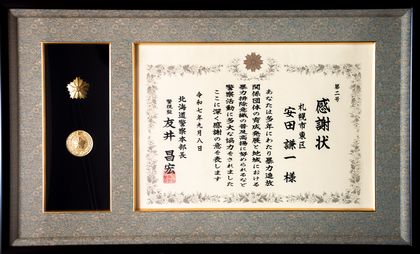 第二号
感謝状
札幌市東区
安田謙一様
あなたは多年にわたり暴力追放
関係団体の育成発展と地域における
暴力排除意識の普及高揚に努められるなど
警察活動に多大な協力をされました
ここに深く感謝の意を表します
令和七年九月八日
北海道警察本部長
警視監 友井昌宏